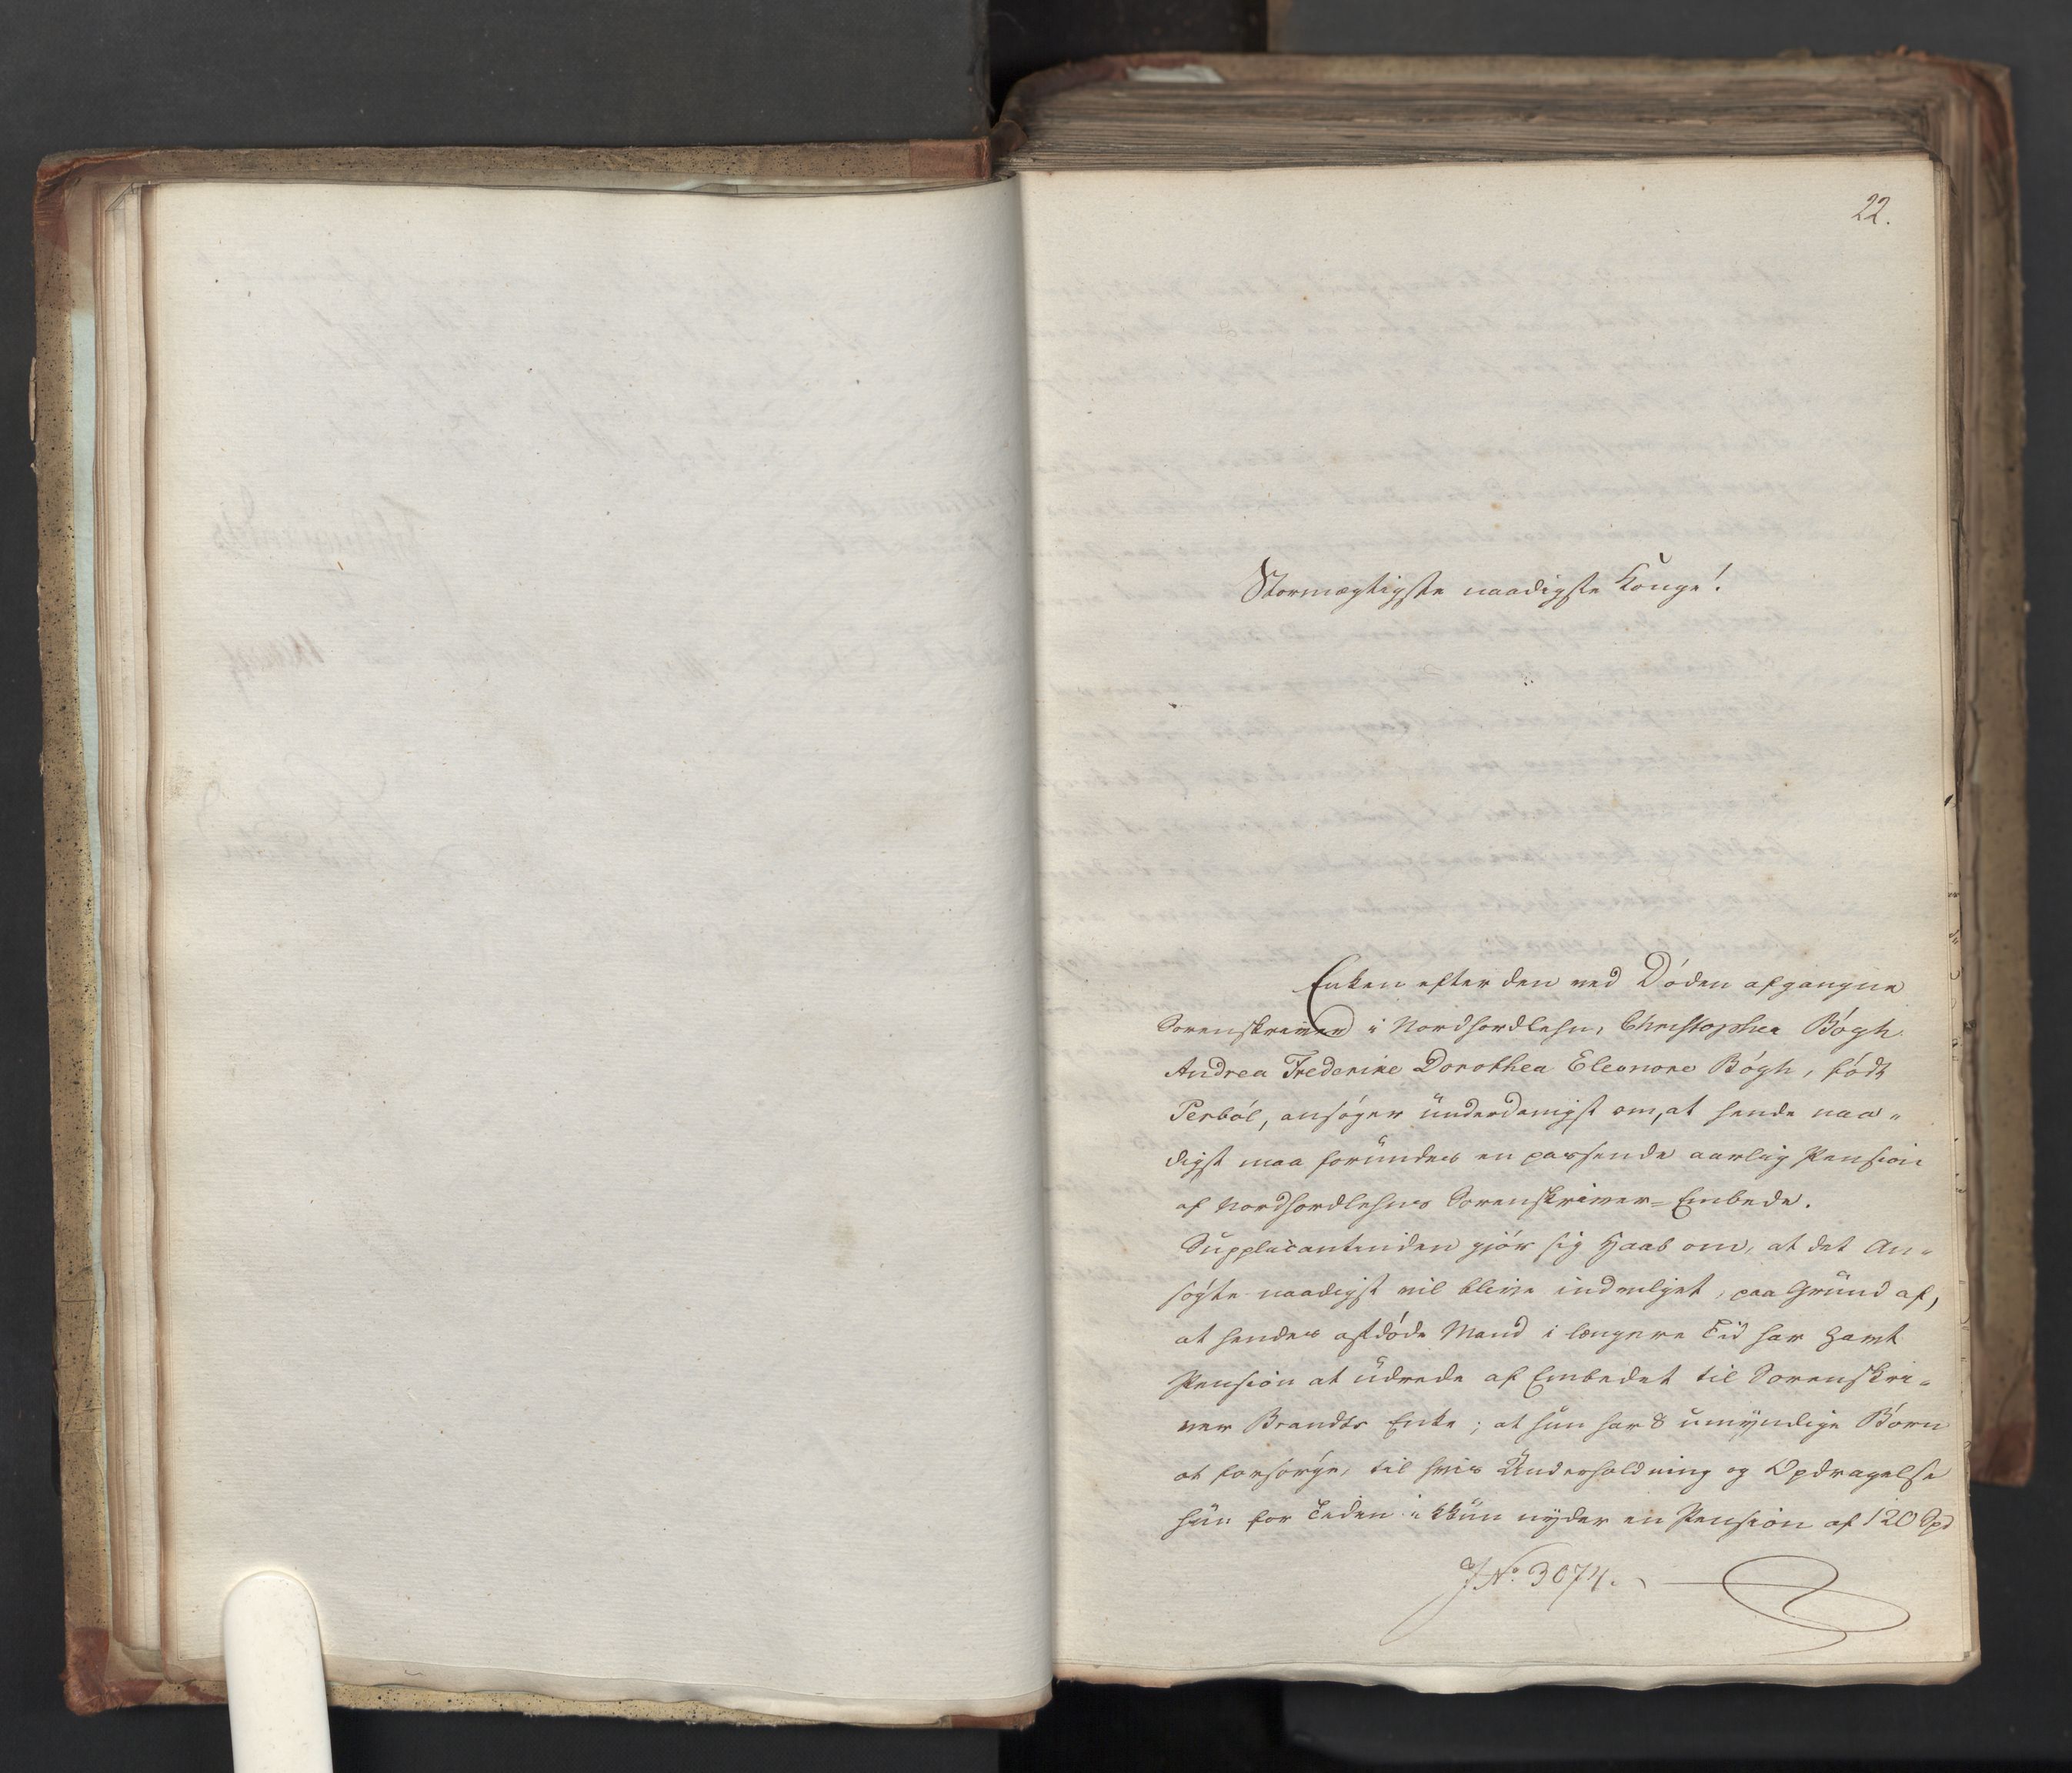 22.
Stormægtigste naadigste Konge!
Enken efter den ved Døden afgangne
Sorenskriver i Nordhordlehn, Christopher Bøgh
Andrea Frederike Dorothea Eleonore Bøgh, født
Perbøl, ansøger underdanigst om, at hende naa-
digst maa forundes en passende aarlig Pension
af Nordhordlehns Sorenskriver-Embede.
Supplicantinden gjør sig Haab om, at det An-
søgte naadigst vil blive indvilget, paa Grund af,
at hendes afdøde Mand i længere Tid har havt
Pension at udrede af Embedet til Sorenskri-
ver Brandts Enke; at hun har 8 umyndige Børn
at forsørge, til hvis Underholdning og Opdragelse
hun for Tiden kun nyder en Pension af 120 Spd
J.No. 3074.